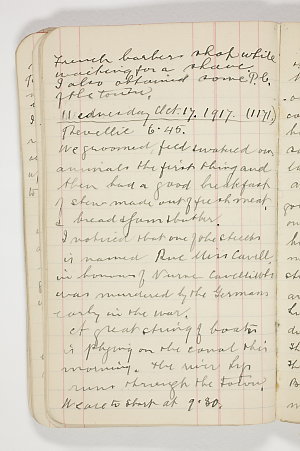 French barbers shop while
waiting for a shave,
I also obtained some P.C.
of the town.
Wednesday Oct. 17. 1917. (1171)
Revellie 6-45.
We groomed, feed & watered our
animals the first thing and
then had a good breakfast
of stew made out of fresh meat,
& bread & jam & butter.
I noticed that one of the streets
is named Rue Miss Cavell,
in honour of Nurse Cavell who
was murdered by the Germans
early in the war.
A great string of boats
is plying on the canal this
morning. The river Lys
runs through the town.
We are to start at 9-30.